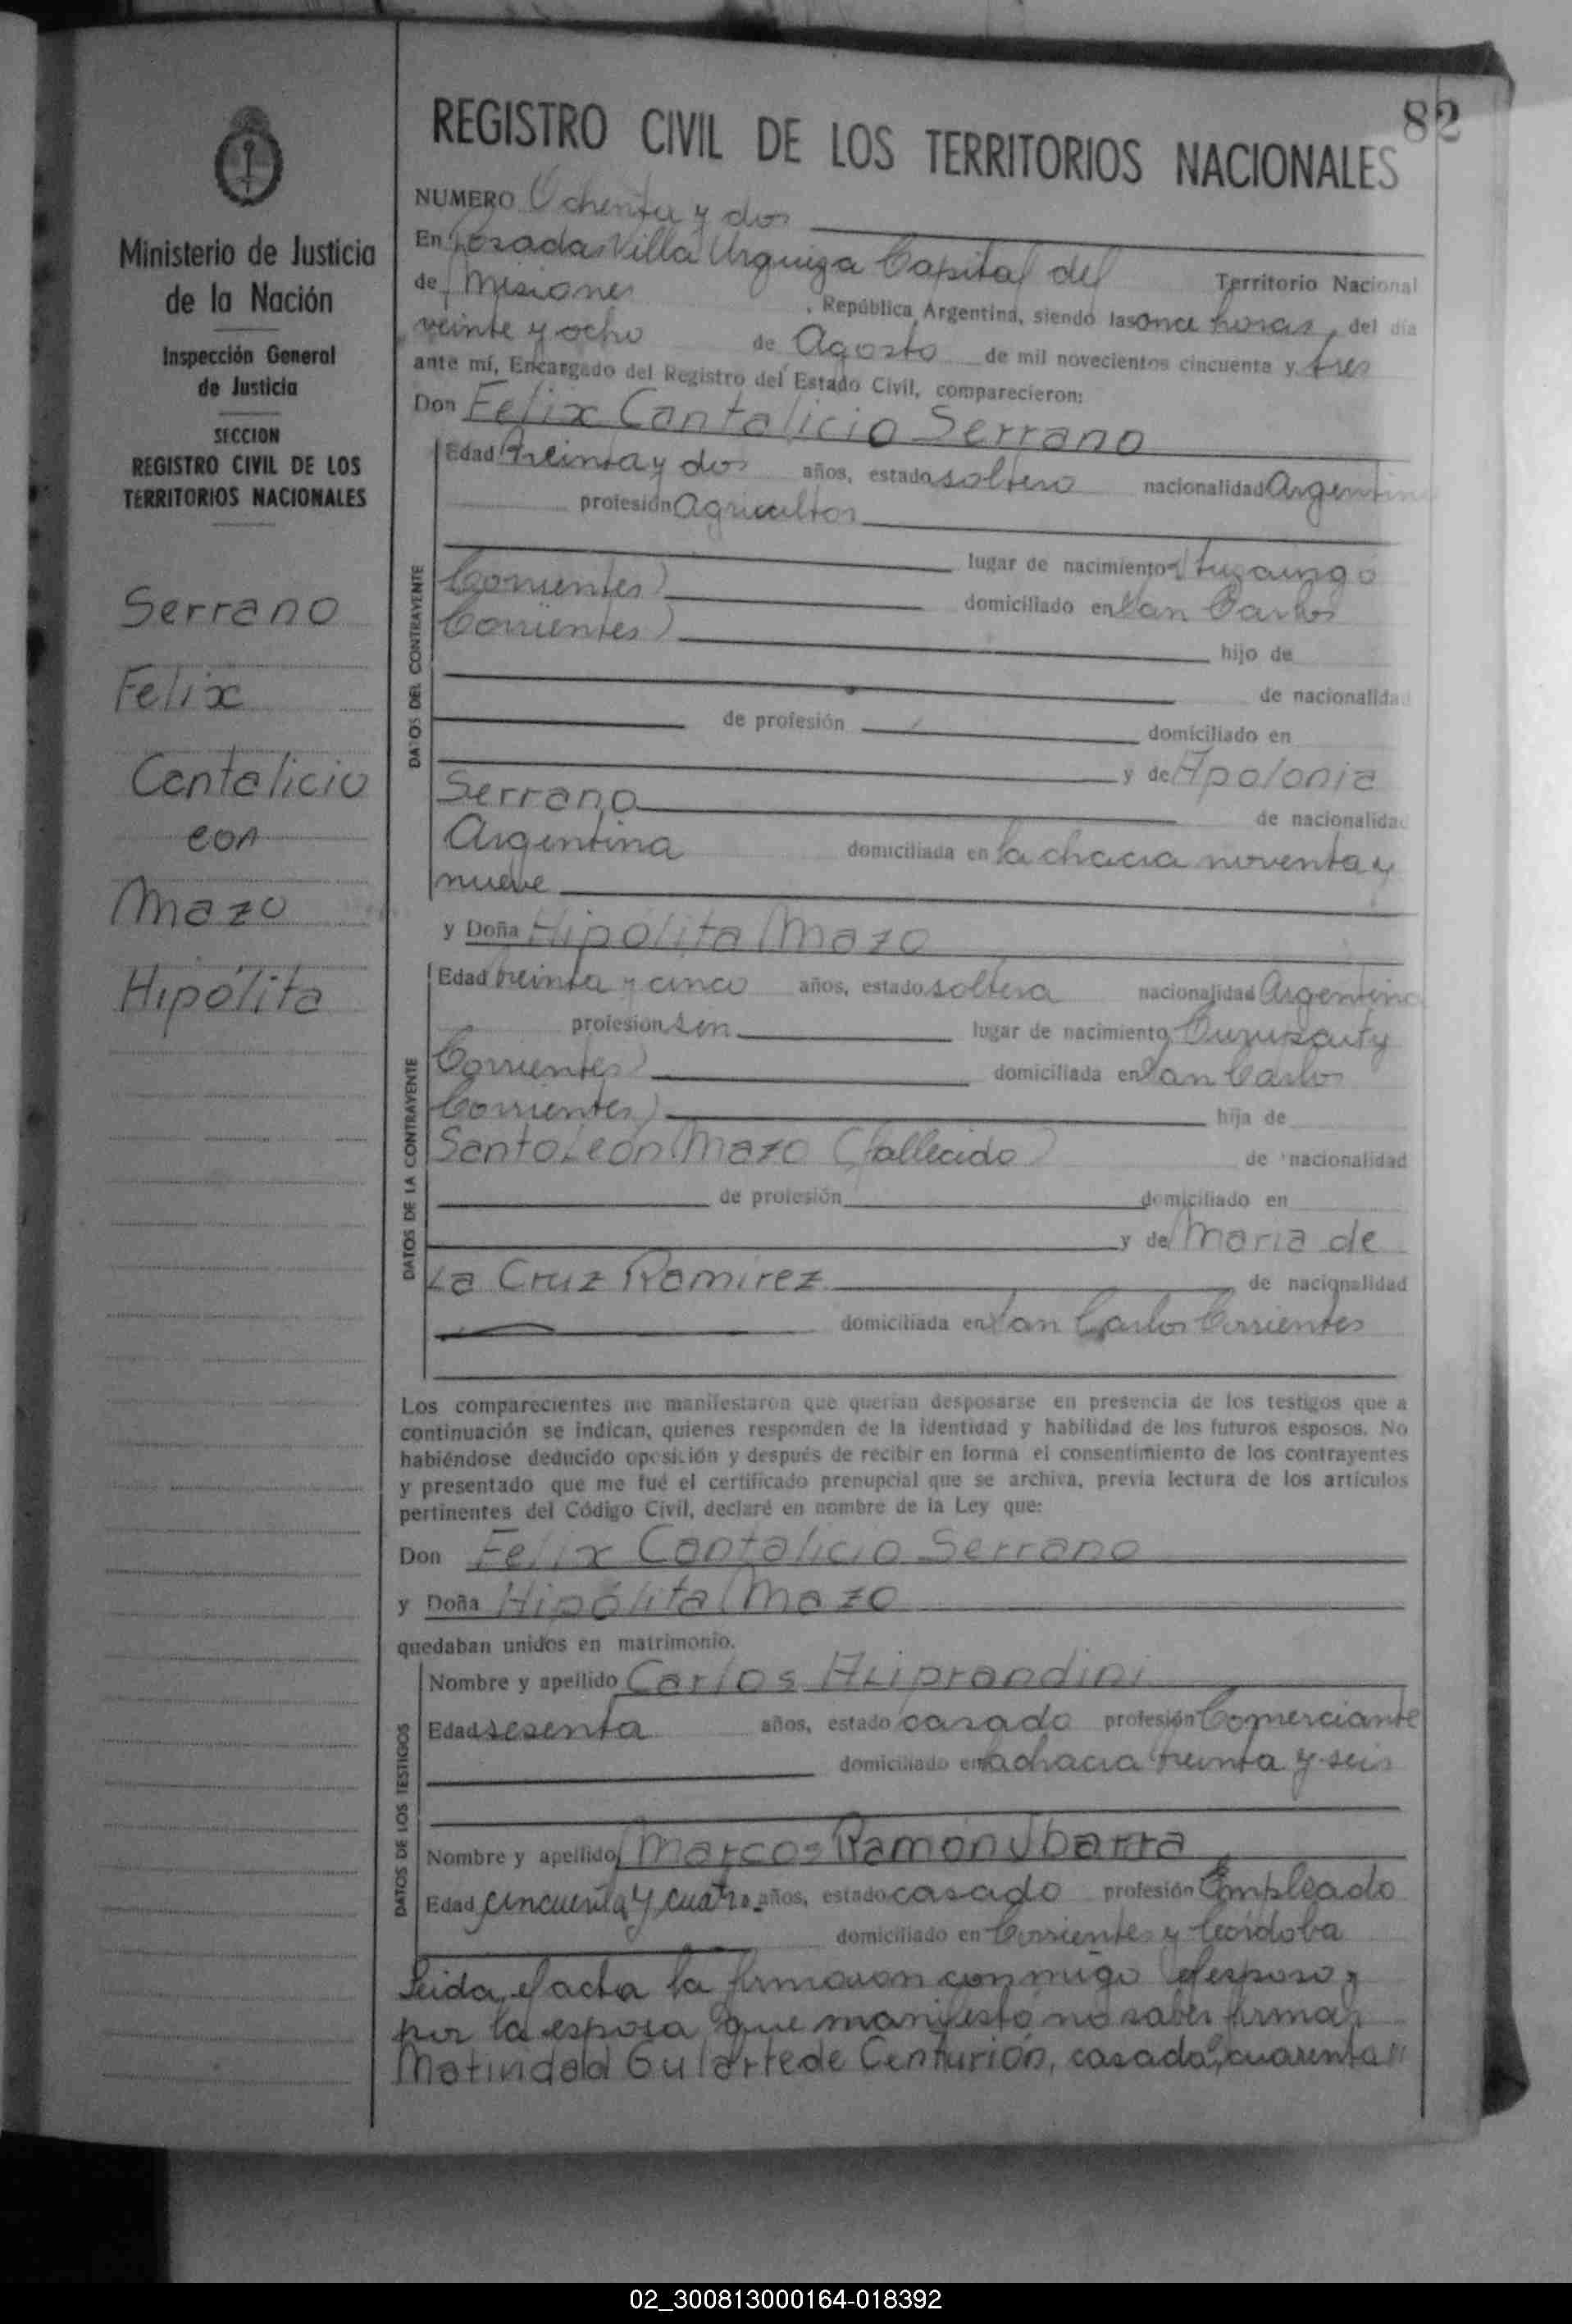 82
REGISTRO CIVIL DE LOS TERRITORIOS NACIONALES
Ministerio de Justicia
de la Nación
Inspección General
de Justicia
SECCION
REGISTRO CIVIL DE LOS
TERRITORIOS NACIONALES
Serrano
Felix
Cantalicio
con
Mazo
Hipólita
NUMERO Ochenta y dos
En Posadas Villa Urquiza Capital del Territorio Nacional
de Misiones, República Argentina, siendo las once horas, del día
veinte y ocho de Agosto de mil novecientos cincuenta y tres
ante mí, Encargado del Registro del Estado Civil, comparecieron:
Don Felix Cantalicio Serrano
DATOS DEL CONTRAYENTE
Edad treinta y dos años, estado soltero nacionalidad Argentino
profesión Agricultor
lugar de nacimiento Ituzaingó
Corrientes) domiciliado en San Carlos
Corrientes) hijo de
de nacionalidad
de profesión domiciliado en
y de Apolonia
Serrano de nacionalidad
Argentina domiciliada en la chacra noventa y
nueve
y Doña Hipólita Mazo
DATOS DE LA CONTRAYENTE
Edad treinta y cinco años, estado soltera nacionalidad Argentina
profesión sin lugar de nacimiento
Corrientes) domiciliada en San Carlos
Corrientes) hija de
Santo León Mazo (fallecido) de nacionalidad
de profesión domiciliado en
y de Maria de
La Cruz Ramirez de nacionalidad
domiciliada en San Carlos Corrientes
Los comparecientes me manifestaron que querían desposarse en presencia de los testigos que a
continuación se indican, quienes responden de la identidad y habilidad de los futuros esposos. No
habiéndose deducido oposición y después de recibir en forma el consentimiento de los contrayentes
y presentado que me fué el certificado prenupcial que se archiva, previa lectura de los artículos
pertinentes del Código Civil, declaré en nombre de la Ley que:
Don Felix Cantalicio Serrano
y Doña Hipólita Mazo
quedaban unidos en matrimonio.
DATOS DE LOS TESTIGOS
Nombre y apellido Carlos Aliprandini
Edad sesenta años, estado casado profesión Comerciante
domiciliado en la chacra treinta y seis
Nombre y apellido Marcos Ramón Ibarra
Edad cincuenta y cuatro años, estado casado profesión Empleado
domiciliado en Corrientes y Córdoba
Leida el acta la firmaron conmigo el esposo y
por la esposa que manifestó no saber firmar
Gularte de Centurión, casada, cuarenta
02_300813000164-018392